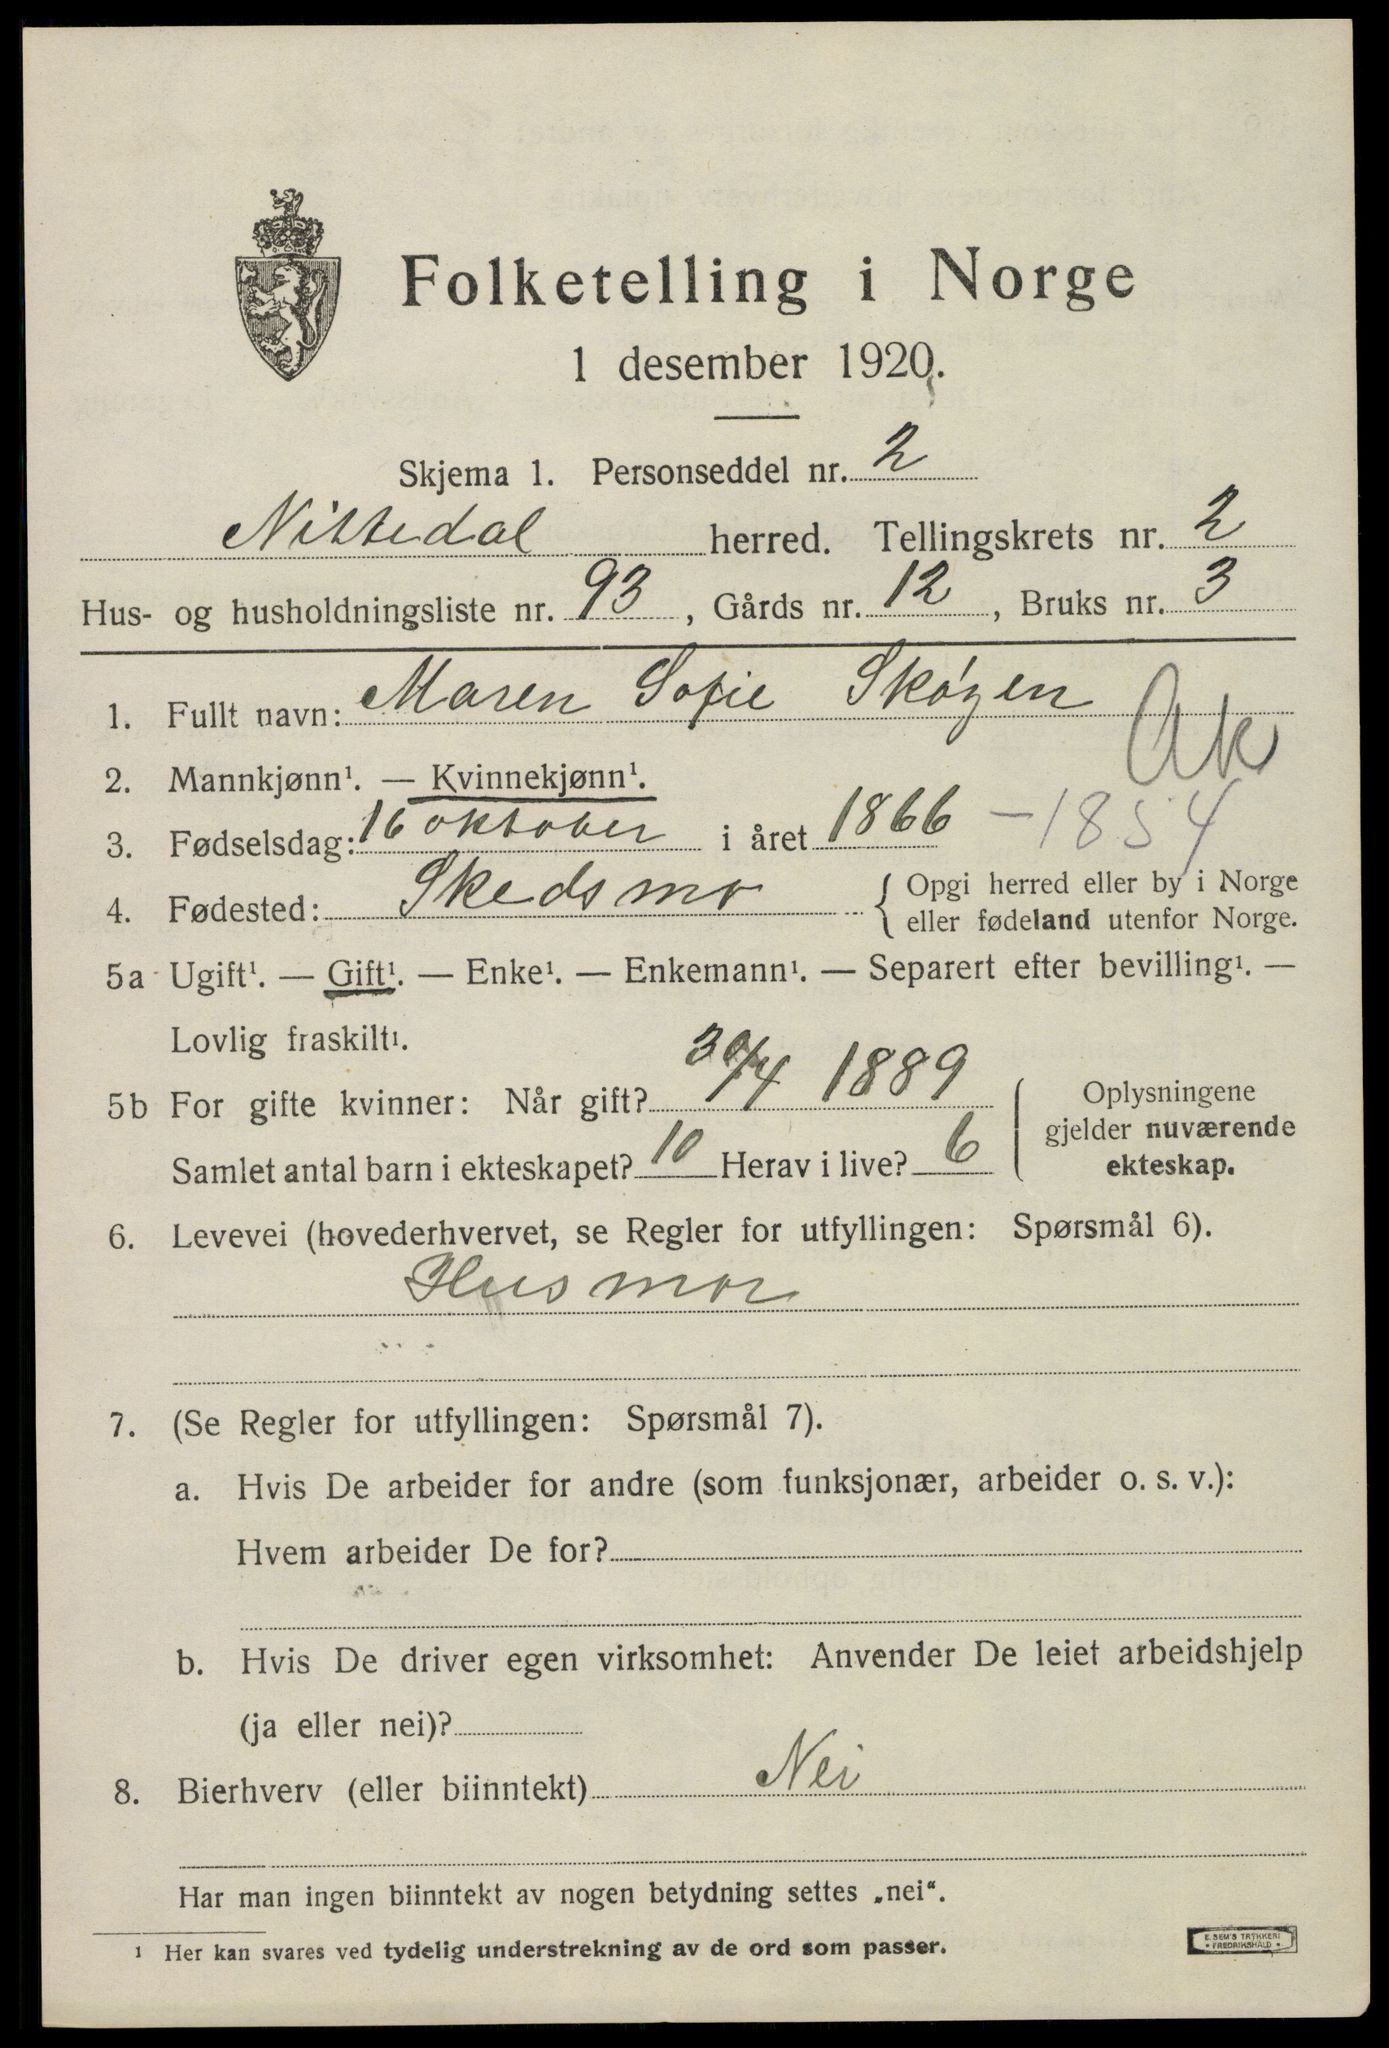 Folketelling i Norge
1 desember 1920.
Skjema 1. Personseddel nr. 2
Nittedal herred. Tellingskrets nr. 2
Hus- og husholdningsliste nr. 93, Gårds nr. 12, Bruks nr. 3
1. Fullt navn: Maren Sofie Skøyen
Ak
2. Mannkjønn¹. — Kvinnekjønn¹.
3. Fødselsdag: 16 oktober i året 1866 – 1854
4. Fødested: Skedsmo { Opgi herred eller by i Norge
eller fødeland utenfor Norge.
5a Ugift¹. — Gift¹. — Enke¹. — Enkemann¹. — Separert efter bevilling¹. —
Lovlig fraskilt¹.
5b For gifte kvinner: Når gift? 30/4 1889
Samlet antal barn i ekteskapet? 10 Herav i live? 6
Oplysningene
gjelder nuværende
ekteskap.
6. Levevei (hovederhvervet, se Regler for utfyllingen: Spørsmål 6).
Husmor
7. (Se Regler for utfyllingen: Spørsmål 7).
a. Hvis De arbeider for andre (som funksjonær, arbeider o. s. v.):
Hvem arbeider De for?
b. Hvis De driver egen virksomhet: Anvender De leiet arbeidshjelp
(ja eller nei)?
8. Bierhverv (eller biinntekt) Nei
Har man ingen biinntekt av nogen betydning settes „nei“.
¹ Her kan svares ved tydelig understrekning av de ord som passer.
E. SEM'S TRYKKERI
• FREDRIKSHALD •